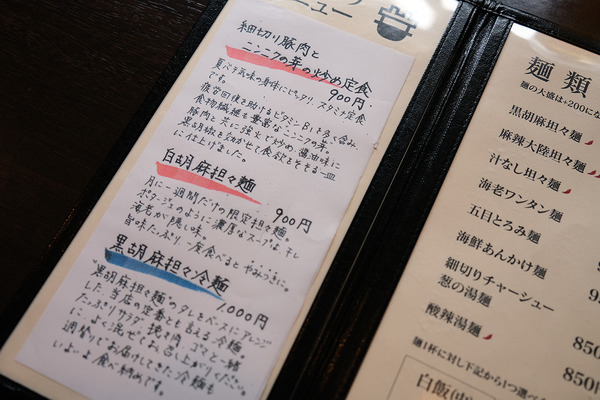 ニュー
細切り豚肉と
ニンニクの芽の炒め定食
900円
夏バテ気味の身体にピッタリ、スタミナ定食
です。
疲労回復を助けるビタミンB1を多く含み、
食物繊維も豊富なニンニクの芽。
豚肉と共に強火で炒め醤油味に
黒胡椒を効かせて食欲をそそる一皿
に仕上げました。
白胡麻担々麺
900円
月に一週間だけの限定担々麺。
ポタージュのように濃厚なスープは干し
海老が隠し味。
旨味たっぷり、一度食べるとやみつきに。
黒胡麻担々冷麺
1,000円
"黒胡麻担々麺"のタレをベースにアレンジ
した当店の定番とも言える冷麺。
たっぷりサラダ、挽き肉、ゴマと一緒
によく混ぜてお召し上がりください。
週替りでお届けしてきた冷麺も
いよいよ食べ納めです。
麺類
麺の大盛は+200にな
黒胡麻担々麺
麻辣大陸担々麺
汁なし担々麺
海老ワンタン麺
五目とろみ麺
海鮮あんかけ麺
細切りチャーシュー
葱の湯麺
850
酸辣湯麺
850
麺1杯に対し下記から1つ選べ
白飯(中)